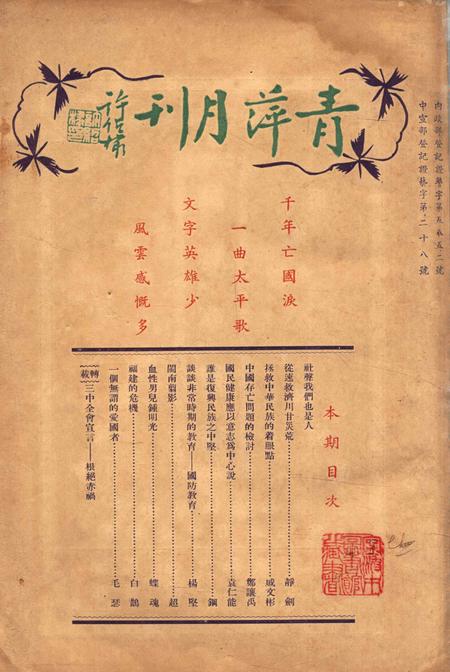 內政部登記證警字第五五五二號
中宣部登記證藝字第二十八號
青萍月刊
千年亡國淚
一曲太平歌
文字英雄少
風雲感慨多
本期目次
社聲我們也是人
從速救濟川甘災荒……靜劍
拯救中華民族的着眼點……戚文彬
中國存亡問題的檢討……鄭讓禹
國民健康應以意志爲中心說……袁仁能
誰是復興民族之中堅……鋼
談談非常時期的教育——國防教育……楊堅
閩南翦影……超
血性男兒鍾明光……蝶魂
福建的危機……白鵠
一個無謂的愛國者……毛瑟
轉載
三中全會宣言——根絕赤禍